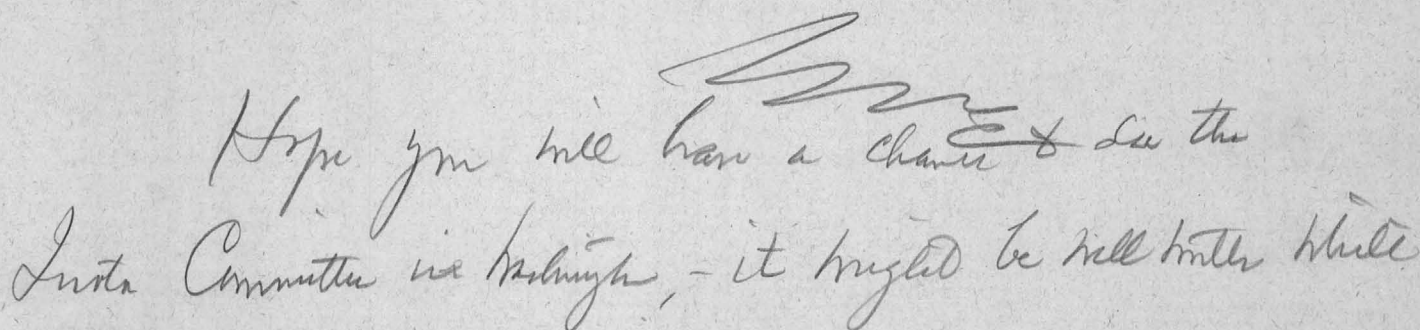 Hope you will have a chance to see the
Committee in Washington, - it might be well worth while